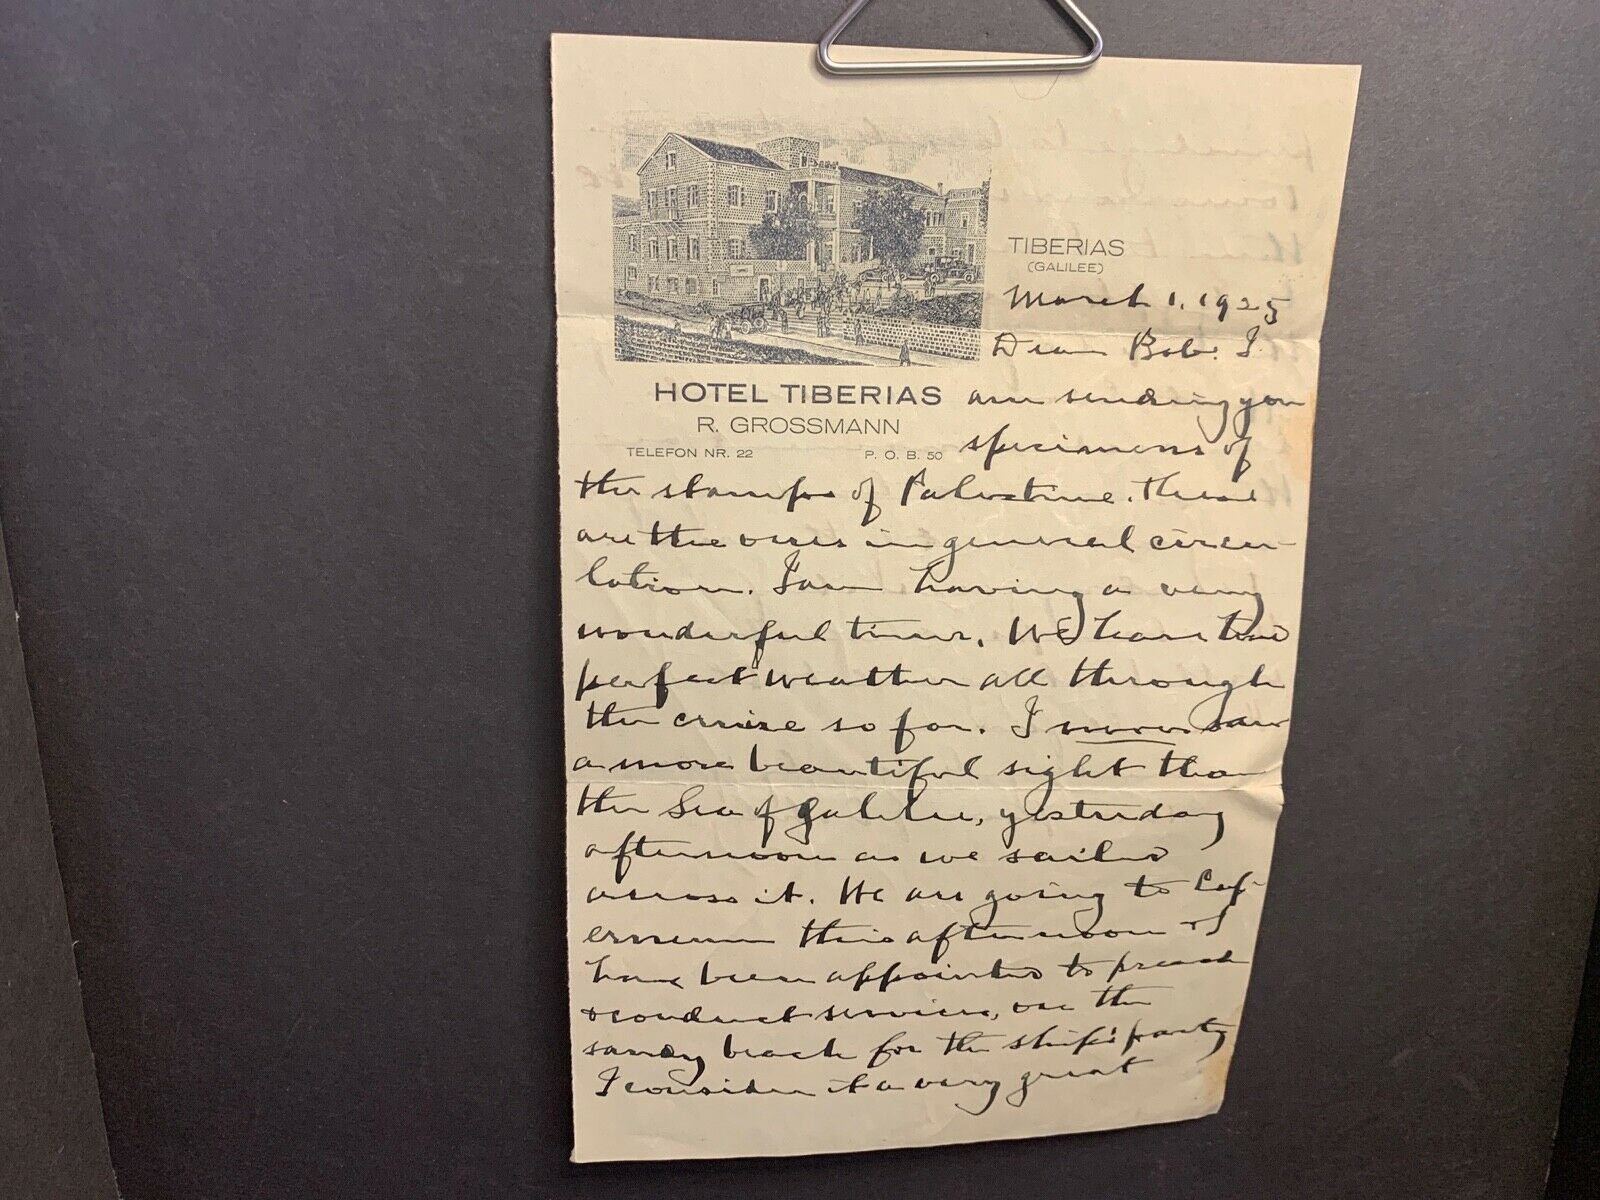 TIBERIAS
(GALILEE)
March 1, 1925
Dear Bob: I
HOTEL TIBERIAS
am sending you
R. GROSSMANN
TELEFON NR. 22 P. O. B. 50
specimens of
the stamps of Palestine. These
are the ones in general circu-
lation. I am having a very
wonderful time. We have had
perfect weather all through
the cruise so far. I never saw
a more beautiful sight than
the Sea of Galilee, yesterday
afternoon as we sailed
across it. We are going to Cap-
ernaum this afternoon & I
have been appointed to preach
& conduct services, on the
sandy beach for the ship's party
I consider it a very great